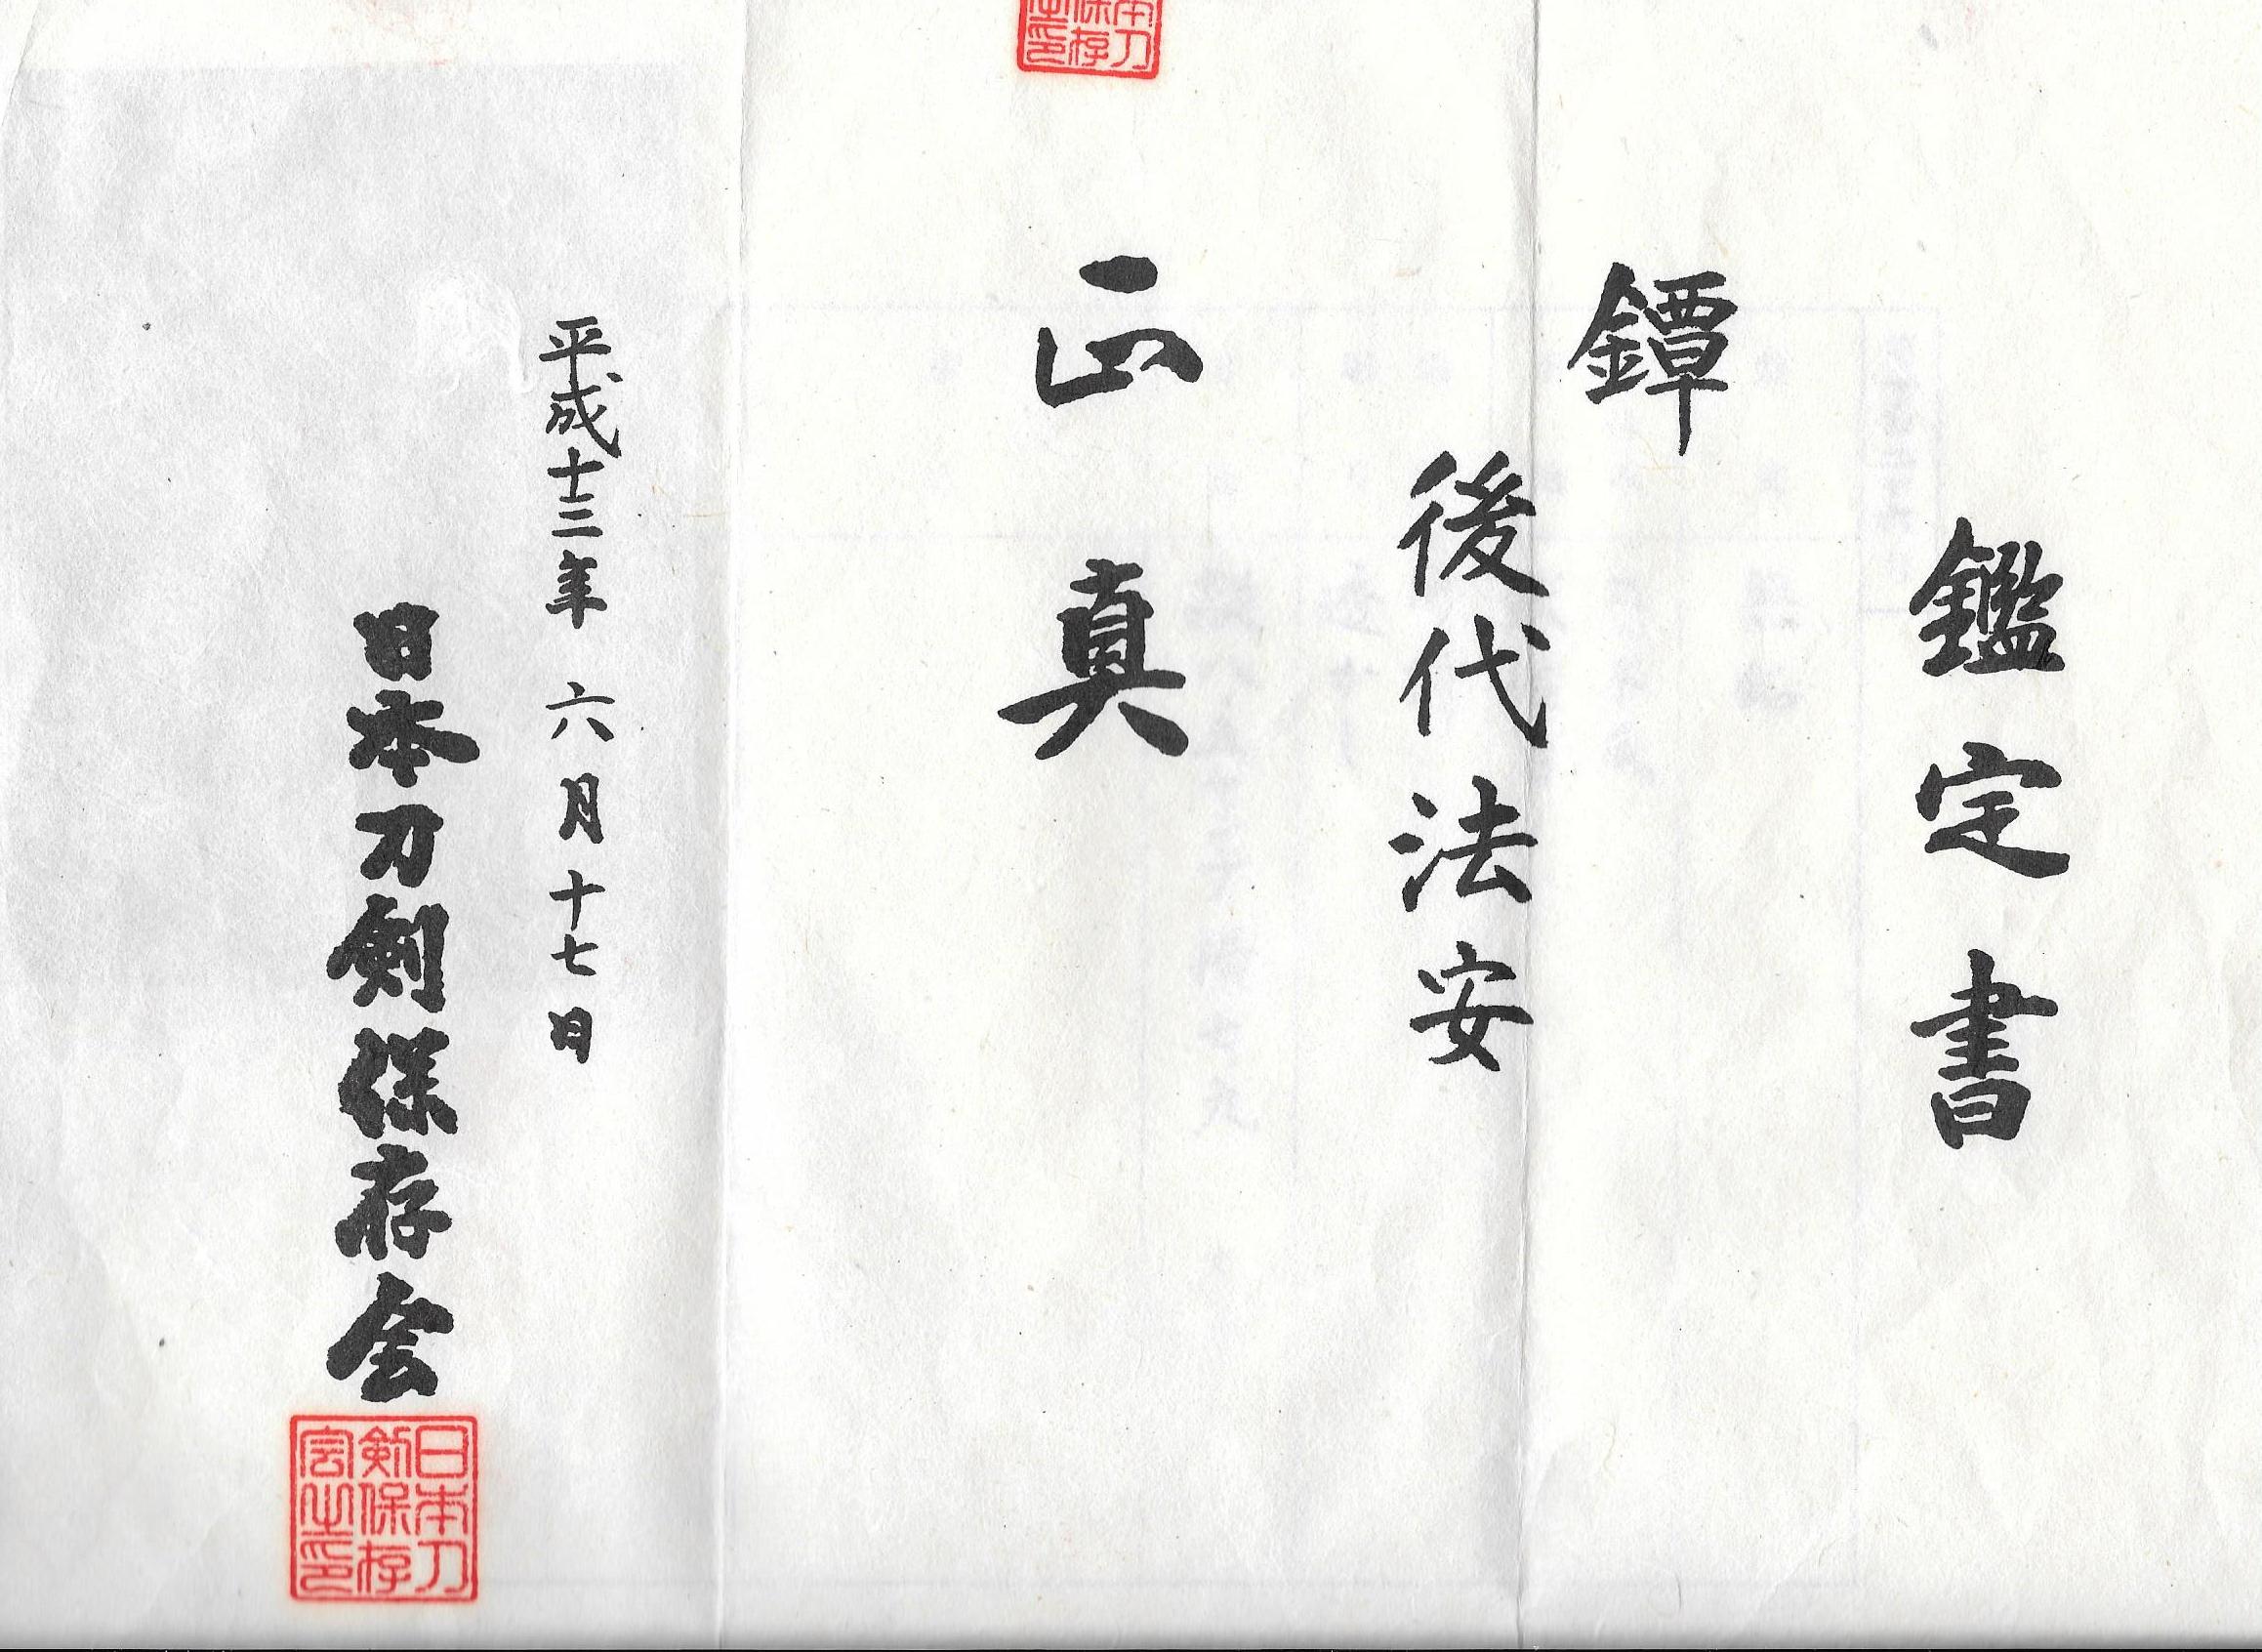 鑑定書
鐔
後代法安
正真
平成十三年 六月十七日
日本刀剣保存会
日本刀
剣保存
会之印
本刀
保存
之印